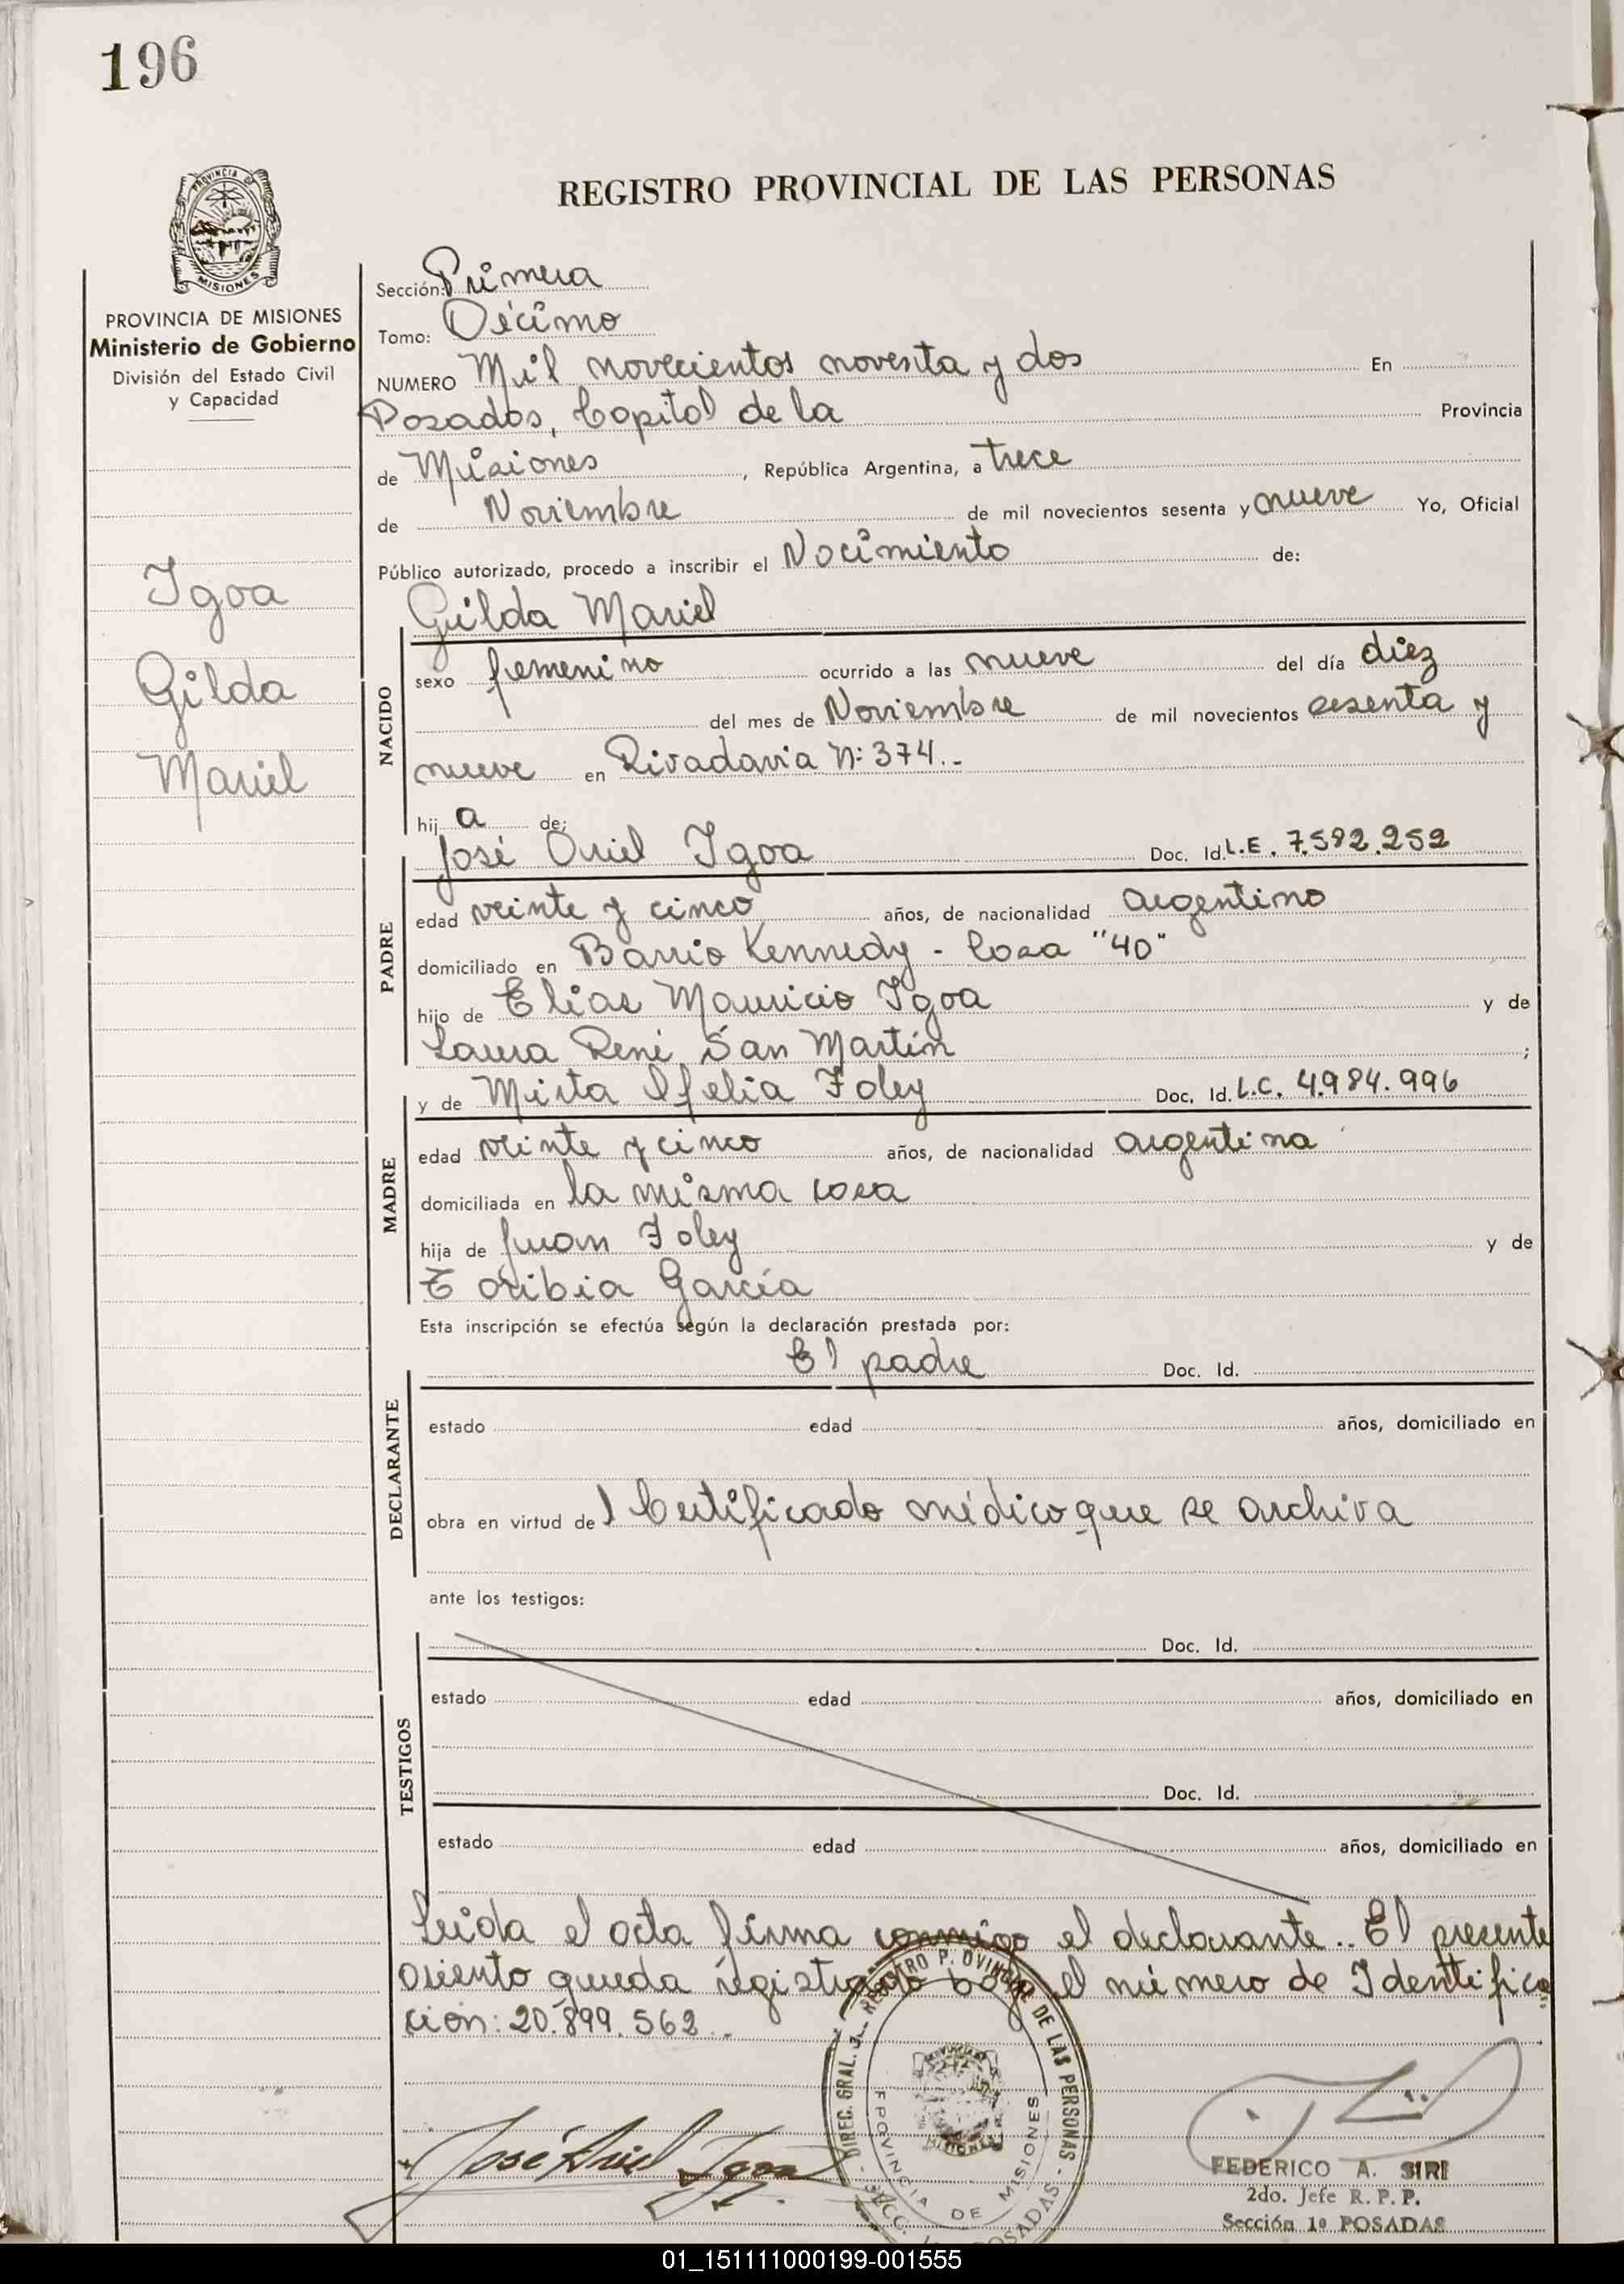 196
REGISTRO PROVINCIAL DE LAS PERSONAS
PROVINCIA DE MISIONES
Ministerio de Gobierno
División del Estado Civil
y Capacidad
Igoa
Gilda
Mariel
Sección: Primera
Tomo: Décimo
NUMERO Mil novecientos noventa y dos En
Posadas, Capital de la Provincia
de Misiones, República Argentina, a trece
de Noviembre de mil novecientos sesenta y nueve Yo, Oficial
Público autorizado, procedo a inscribir el Nacimiento de:
Gilda Mariel
NACIDO
sexo femenino ocurrido a las nueve del día diez
del mes de Noviembre de mil novecientos sesenta y
nueve en Rivadavia Nº 374.-
hij a de:
José Ariel Igoa Doc. Id. L.E. 7.592.252
PADRE
edad veinte y cinco años, de nacionalidad argentino
domiciliado en Barrio Kennedy - Casa "40"
hijo de Elias Mauricio Igoa y de
Laura René San Martín ;
y de Mirta Ofelia Foley Doc. Id. L.C. 4.984.996
MADRE
edad veinte y cinco años, de nacionalidad argentina
domiciliada en la misma casa
hija de Juan Foley y de
Toribia García
Esta inscripción se efectúa según la declaración prestada por:
El padre Doc. Id.
DECLARANTE
estado edad años, domiciliado en
obra en virtud de l Certificado médico que se archiva
ante los testigos:
Doc. Id.
TESTIGOS
estado edad años, domiciliado en
Doc. Id.
estado edad años, domiciliado en
Leída el acta firma conmigo el declarante.. El presente
asiento queda registrado bajo el número de Identifica
ción: 20.899.562.-
DIREC. GRAL. REGISTRO PROVINCIAL DE LAS PERSONAS
PROVINCIA DE MISIONES
POSADAS
MISIONES
José Ariel Igoa
FEDERICO A. SIRI
2do. Jefe R. P. P.
Sección 1ª POSADAS
01_151111000199-001555